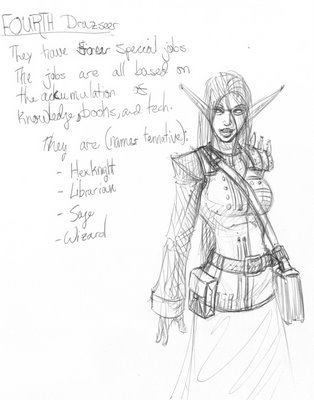 FOURTH Drazseer
They have special jobs
The jobs are all based on
the accumulation of
Knowledge, books, and tech.
They are (names tennative):
- Hexknight
- Librarian
- Sage
- Wizard